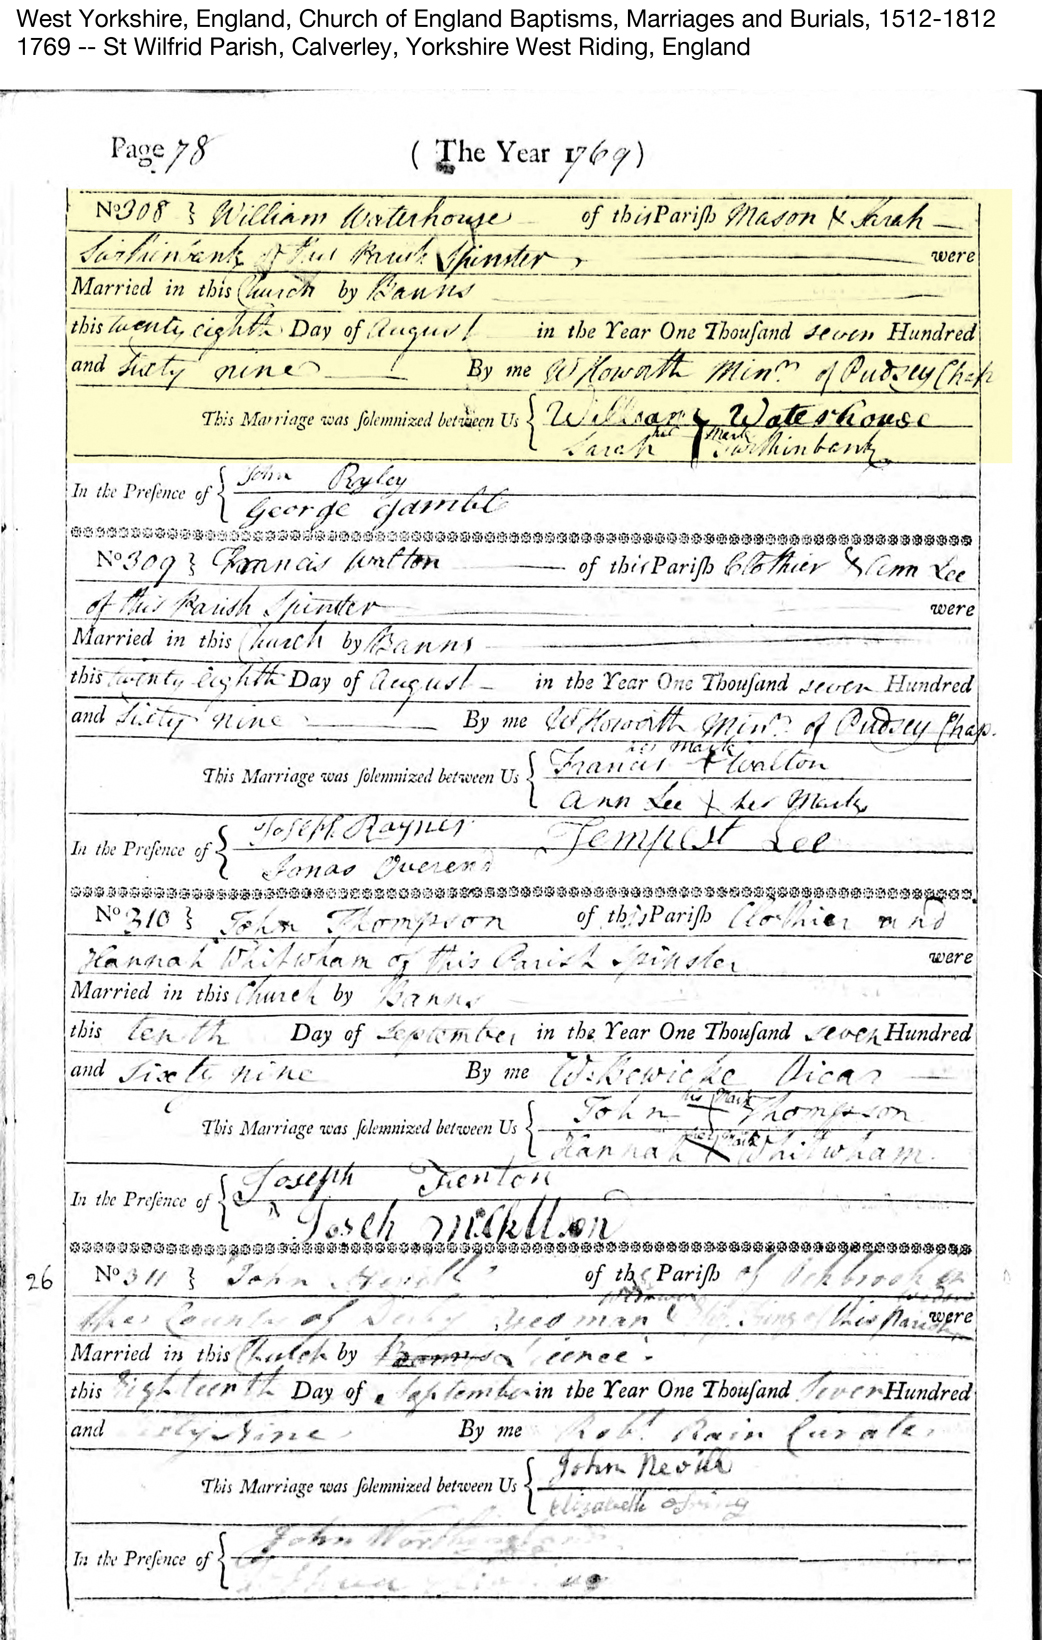 West Yorkshire, England, Church of England Baptisms, Marriages and Burials, 1512-1812
1769 -- St Wilfrid Parish, Calverley, Yorkshire West Riding, England
Page 78 ( The Year 1769)
No 308 } William Waterhouse of this Pariſh Mason & Sarah
of this Parish Spinster were
Married in this Church by Banns
this twenty eighth Day of August in the Year One Thouſand seven Hundred
and Sixty nine By me W Howorth Minr. of Pudsey Chap
This Marriage was ſolemnized between Us { William Waterhouse
Sarah her Mark
In the Preſence of { John Ryley
George Gamble
No 309 } Francis Walton of this Pariſh Clothier & Ann Lee
of this Parish Spinster were
Married in this Church by Banns
this twenty eighth Day of August in the Year One Thouſand seven Hundred
and Sixty nine By me W Howorth Minr. of Pudsey Chap.
This Marriage was ſolemnized between Us { Francis his Mark Walton
Ann Lee her Mark
In the Preſence of { Joseph Rayner Tempest Lee
Jonas Overend
No 310 } John Thompson of this Pariſh Clothier and
Hannah Whitwham of this Parish Spinster were
Married in this Church by Banns
this tenth Day of September in the Year One Thouſand seven Hundred
and Sixty nine By me Vicar
This Marriage was ſolemnized between Us { John his Mark Thompson
Hannah her mark Whitwham
In the Preſence of { Joseph
26 No 311 } John of the Pariſh of
the County of Derby Yeoman & of this Parish were
Married in this Church by Banns Licence
this Eighteenth Day of September in the Year One Thouſand Seven Hundred
and Sixty Nine By me Robt. Curate
This Marriage was ſolemnized between Us { John Nevill
Elizabeth
In the Preſence of { John